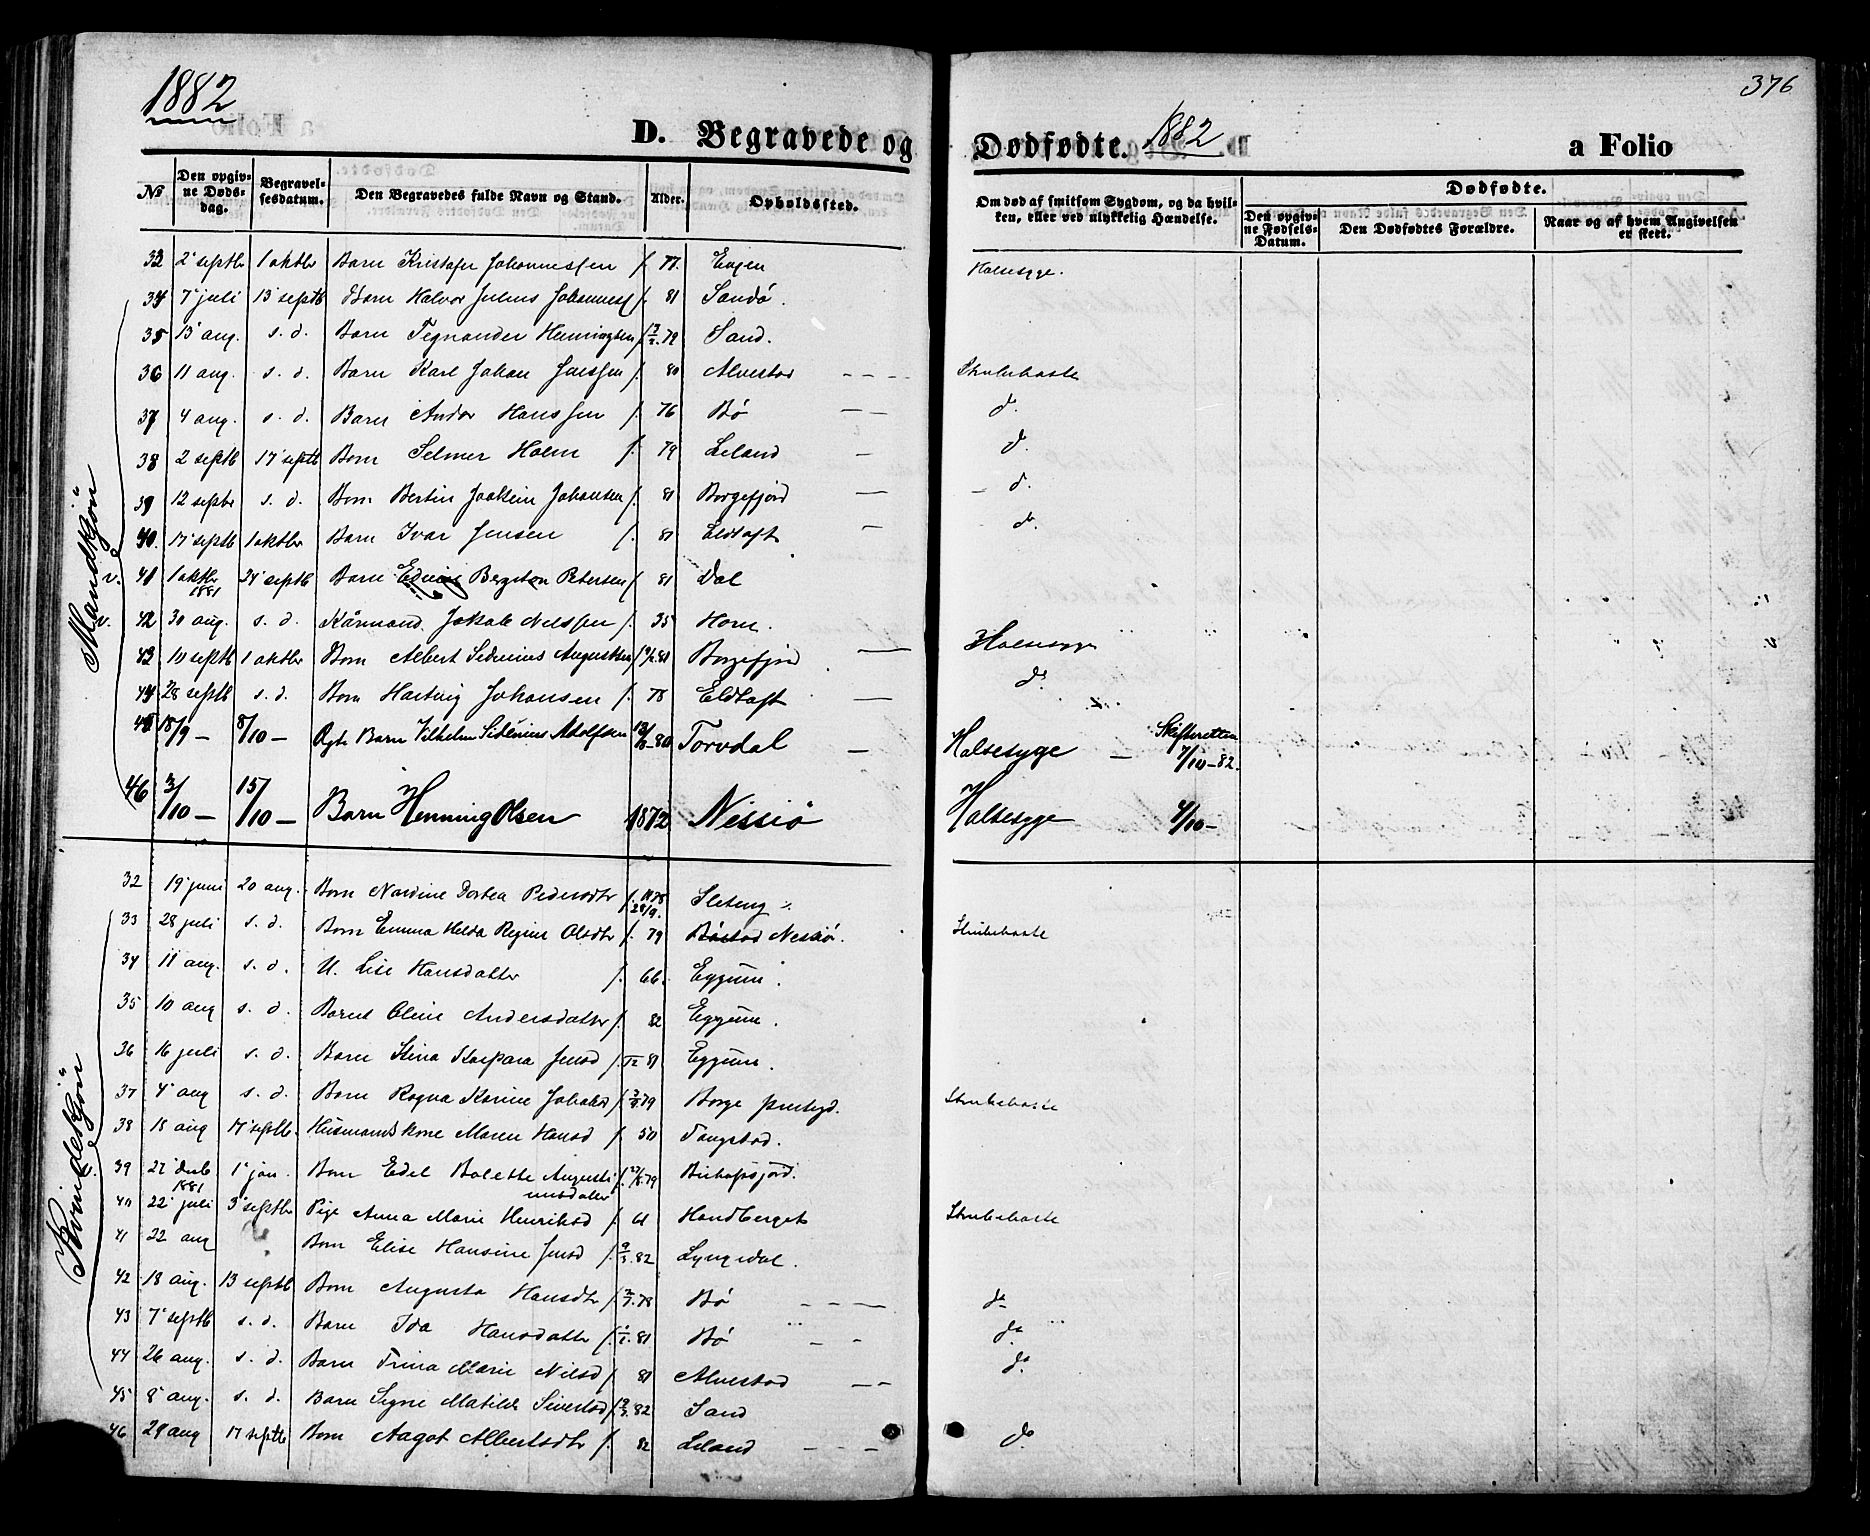 1882
D. Begravede og
№
Den opgivne Dødsdag.
Begravelsesdatum.
Den Begravedes fulde Navn og Stand.
Alder.
Opholdssted.
Mandkjön
33 2' septbr 1 oktbr Barn Kristofer Johannessen f. 77. Eugen
34 7' juli 13' septb Barn Halvor Julius Johanness f. 81 Sandö.
35 13' aug. s. d. Barn Tegnander Henningsen f. 79 Sand.
36 11 aug. s. d. Barn Karl Johan Jenssen f. 80 Alvestad
37 4 aug. s. d. Barn Andor Hanssen f. 76 Bö
38 2 septb 17' septb Barn Selmer Holm f. 79 Leland
39 12 septbr s. d. Barn Bertin Joakim Johansen f. 81 Borgefjord
40. 17' septb 1 oktbr Barn Ivar Jensen f. 81 Eltoft
v. 41 1 oktbr 1881 24' septb Barn Edvin Bergeton Petersen f. 81 Dal
v. 42 30 aug. s. d. Kårmand Jakob Nilssen f. 35 Horn.
43 10 septb 1 oktbr Barn Albert Sidenius Augustsen 81 Borgefjord
44 28 septb s. d. Barn Hartvig Johansen f. 78 Eltoft
45 18/9 — 8/10 — Rgb Barn Vilhelm Sidenius Adolfsen 80 Torvdal
46 3/10 — 15/10 — Barn Henning Olsen 1872 Nessiö
Kvindekjön
32 19' juni 20 aug. Barn Nardine Dortea Pedersdtr f. 28/9. 1878 Sleteng
33 28 juli s. d. Barn Emma Helda Regine Olsdtr f. 79 Båstad Nessiö.
34 11 aug. s. d. U. Lise Hansdatter f. 66. Eggum.
35 10 aug s. d. Barnet Oline Andersdatter f. 82 Eggum.
36 16 juli s. d. Barn Stina Kaspara Jensd f. 81 Eggum.
37 4' aug s. d. Barn Ragna Karine f. 79 Borge prestegd.
38 18 aug 17' septb. Husmandskone Maren Hansd f. 50 Tangstad.
v. 39 27' decb 1881 1' jan. Barn Edel Bolette Augustinusdatter f. 79
40 22' juli 3' septbr Pige Anna Marie Henriksd f. 61 Handberget
41 22 aug Barn Elise Hansine Jensd f. 9/3. 82 Lyngedal.
42 18 aug. 13 septb Barn Augusta Hansdtr f. 78 Bö
43 7' septb s. d. Barn Ida Hansdatter f. 81 Bö
44 26 aug. s. d. Barn Trina Marie Nilsd f. 81 Alvestad
45 8' aug. s. d. Barn Signe Matilde Sivertsd f. 82 Sand
46 29 aug 17 septb Barn Aagot Albertsdtr f. 82 Leland
376
Dødfødte. 1882
a Folio
Om død af smitsom Sygdom, og da hvilken, eller ved ulykkelig Hændelse.
Dødfødte.
Den opgivne Fødsels-Datum.
Den Dødfødtes Forældre.
Naar og af hvem Angivelsen er skett.
Halsesyge.
Strubehoste
d.
d.
d.
do
Halsesyge
do
Halsesyge — Skifteretten 7/10-82.
Halsesyge 4/10 -
Strubehoste
Strubehoste
Strubehoste
do
do
do
do